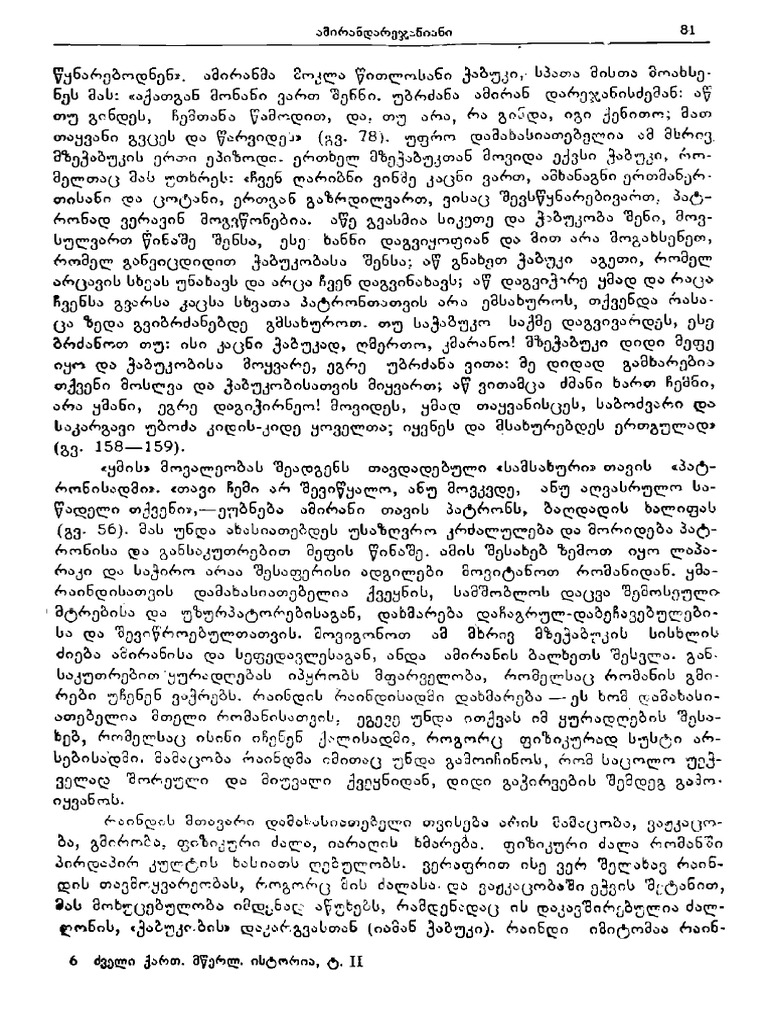 ამირანდარეჯანიანი 81
წყნარებოდნენ». ამირანმა მოკლა წითლოსანი ჭაბუკი, სპათა მისთა მოახსე-
ნეს მას: «აქათგან მონანი ვართ შენნი. უბრძანა ამირან დარეჯანისძემან: აწ
თუ გინდეს, ჩემთანა წამოდით, და, თუ არა, რა გინდა, იგი ქენითო; მათ
თაყვანი გვცეს და წარვიდეს» (გვ. 78). უფრო დამახასიათებელია ამ მხრივ
მზეჭაბუკის ერთი ეპიზოდი. ერთხელ მზეჭაბუკთან მოვიდა ექვსი ჭაბუკი, რო-
მელთაც მას უთხრეს: «ჩვენ ღარიბნი ვინმე კაცნი ვართ, ამხანაგნი ერთმანერ-
თისანი და ცოტანი, ერთგან გაზრდილვართ, ვისაც შევსწყნარებივართ, პატ-
რონად ვერავინ მოგვწონებია. აწე გვასმია სიკეთე და ჭაბუკობა შენი, მოვ-
სულვართ წინაშე შენსა, ესე ხანნი დაგვიყოფიან და მით არა მოგახსენეთ,
რომელ განვიცდიდით ჭაბუკობასა შენსა; აწ გნახეთ ჭაბუკი აგეთი, რომელ
არცავის სხვას უნახავს და არცა ჩვენ დაგვინახავს; აწ დაგვიჭირე ყმად და რაცა
ჩვენსა გვარსა კაცსა სხვათა პატრონთათვის არა ემსახუროს, თქვენდა რასა-
ცა ზედა გვიბრძანებდე გმსახუროთ. თუ საჭაბუკო საქმე დაგვივარდეს, ესე
ბრძანოთ თუ: ისი კაცნი ჭაბუკად, ღმერთო, კმარანო! მზეჭაბუკი დიდი მეფე
იყო და ჭაბუკობისა მოყვარე, ეგრე უბრძანა ვითა: მე დიდად გამხარებია
თქვენი მოსლვა და ჭაბუკობისათვის მიყვართ; აწ ვითამცა ძმანი ხართ ჩემნი,
არა ყმანი, ეგრე დაგიჭირნეო! მოვიდეს, ყმად თაყვანისცეს, საბოძვარი და
საკარგავი უბოძა კიდის-კიდე ყოველთა; იყვნეს და მსახურებდეს ერთგულად»
(გვ. 158—159).
«ყმის» მოვალეობას შეადგენს თავდადებული «სამსახური» თავის «პატ-
რონისადმი». «თავი ჩემი არ შევიწყალო, ანუ მოვკვდე, ანუ აღვასრულო სა-
წადელი თქვენი»,—ეუბნება ამირანი თავის პატრონს, ბაღდადის ხალიფას
(გვ. 56). მას უნდა ახასიათებდეს უსაზღვრო კრძალულება და მორიდება პატ-
რონისა და განსაკუთრებით მეფის წინაშე. ამის შესახებ ზემოთ იყო ლაპა-
რაკი და საჭირო არაა შესაფერისი ადგილები მოვიტანოთ რომანიდან. ყმა-
რაინდისათვის დამახასიათებელია ქვეყნის, სამშობლოს დაცვა შემოსეული
მტრებისა და უზურპატორებისაგან, დახმარება დაჩაგრულ-დაბეჩავებულები-
სა და შევიწროებულთათვის. მოვიგონოთ ამ მხრივ მზეჭაბუკის სისხლის
ძიება ამირანისა და სეფედავლესაგან, ანდა ამირანის ბალხეთს შესვლა. გან-
საკუთრებით ყურადღებას იპყრობს მფარველობა, რომელსაც რომანის გმი-
რები უჩენენ ვაჭრებს. რაინდის რაინდისადმი დახმარება — ეს ხომ დამახასი-
ათებელია მთელი რომანისათვის. ეგევე უნდა ითქვას იმ ყურადღების შესა-
ხებ, რომელსაც ისინი იჩენენ ქალისადმი, როგორც ფიზიკურად სუსტი არ-
სებისადმი. მამაცობა რაინდმა იმითაც უნდა გამოიჩინოს, რომ საცოლო უეჭ-
ველად შორეული და მიუვალი ქვეყნიდან, დიდი გაჭირვების შემდეგ გამო-
იყვანოს.
რაინდის მთავარი დამახასიათებელი თვისება არის მამაცობა, ვაჟკაცო-
ბა, გმირობა, ფიზიკური ძალა, იარაღის ხმარება. ფიზიკური ძალა რომანში
პირდაპირ კულტის ხასიათს ღებულობს. ვერაფრით ისე ვერ შელახავ რაინ-
დის თავმოყვარეობას, როგორც მის ძალასა და ვაჟკაცობაში ეჭვის შეტანით,
მას მოხუცებულობა იმდენად აწუხებს, რამდენადაც ის დაკავშირებულია ძალ-
ღონის, «ჭაბუკობის» დაკარგვასთან (იამან ჭაბუკი). რაინდი იმიტომაა რაინ-
6 ძველი ქართ. მწერლ. ისტორია, ტ. II